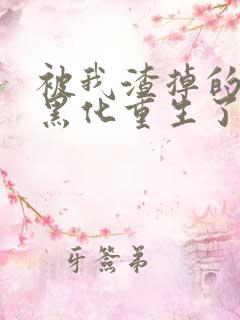 被我渣掉的
黑化重生了
牙签弟